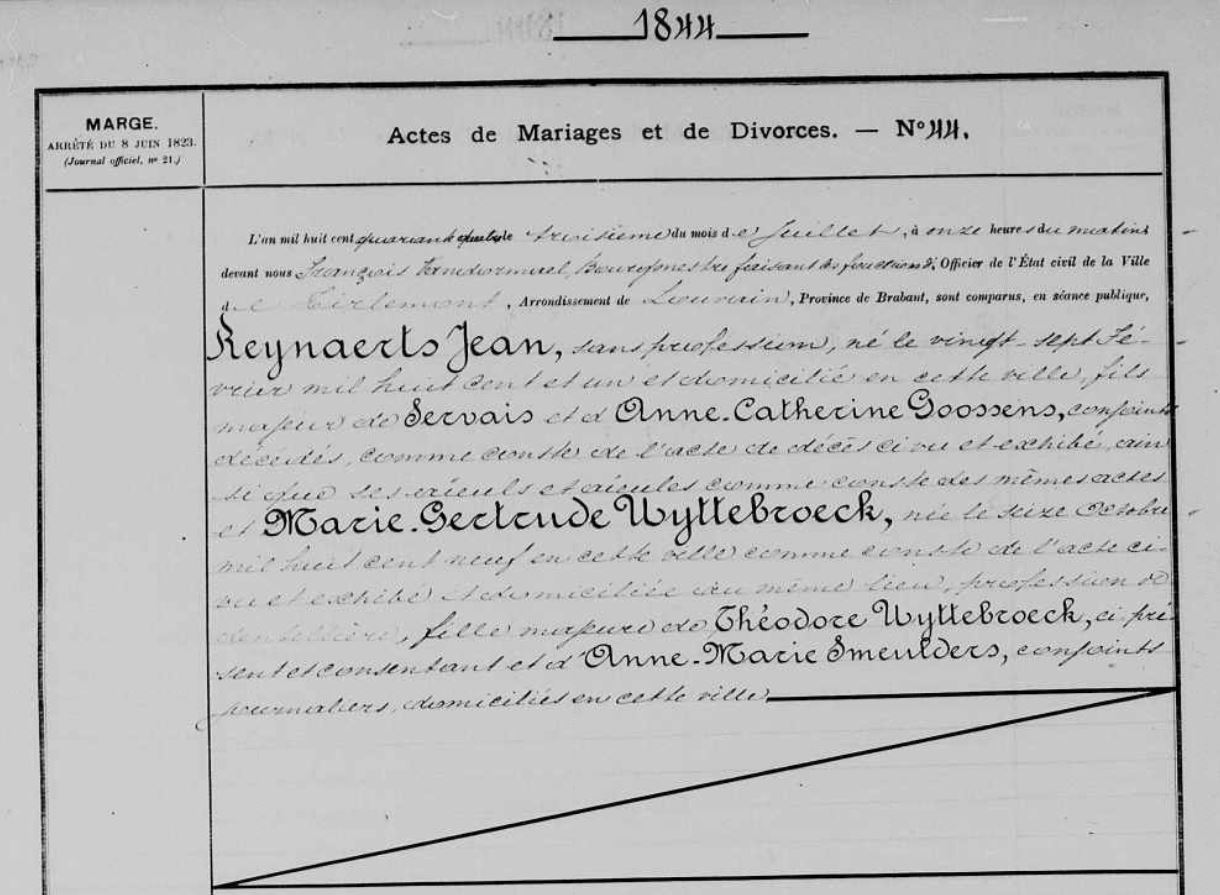 1844
MARGE.
ARRÊTÉ DU 8 JUIN 1823.
(Journal officiel, n° 21.)
Actes de Mariages et de Divorces. — N° 44.
L'an mil huit cent quarante quatre le troisième du mois de Juillet, à onze heures du matin
devant nous François Bourgmestre faisant les fonctions d' Officier de l'État civil de la Ville
de Tirlemont, Arrondissement de Louvain, Province de Brabant, sont comparus, en séance publique,
Reynaerts Jean, sans profession, né le vingt-sept Fé-
vrier mil huit cent et un et domicilié en cette ville, fils
majeur de Servais et d'Anne-Catherine Goossens, conjoints
décédés, comme conste de l'acte de décès ci vu et exhibé, ain
si que ses aïeuls et aïeules comme conste des mêmes actes
et Marie-Gertrude Uyttebroeck, née le seize Octobre
mil huit cent neuf en cette ville comme conste de l'acte ci-
vu et exhibé et domiciliée au même lieu, profession de
dentellière, fille majeure de Théodore Uyttebroeck, ci pré-
sent et consentant et d'Anne-Marie Smeulders, conjoints
journaliers, domiciliés en cette ville